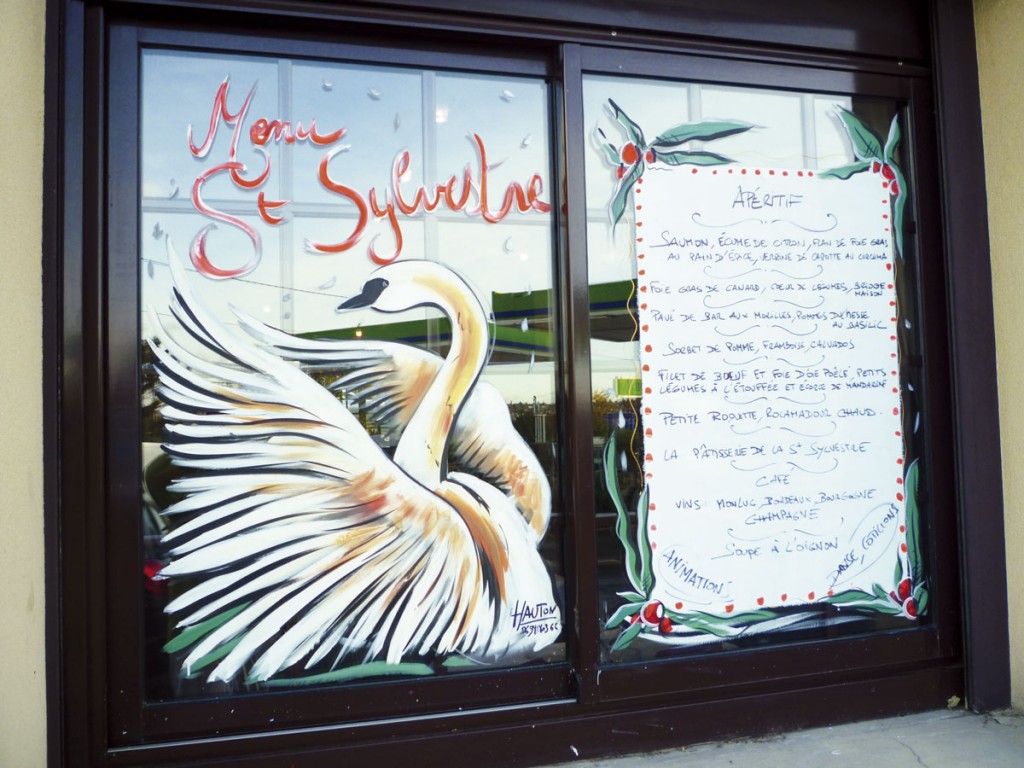 Menu
St Sylvestre
APÉRITIF
SAUMON, ÉCUME DE CITRON, FLAN DE FOIE GRAS
AU PAIN D'ÉPICE, VERRINE DE CAROTTE AU CURCUMA
FOIE GRAS DE CANARD, CŒUR DE LÉGUMES, BRIOCHE
MAISON
PAVÉ DE BAR AUX MORILLES, POMMES DUCHESSE
AU BASILIC
SORBET DE POMME, FRAMBOISE, CALVADOS
FILET DE BŒUF ET FOIE D'OIE POÊLÉ, PETITS
LÉGUMES À L'ÉTOUFFÉE ET ÉCORCE DE MANDARINE
PETITE ROQUETTE, ROCAMADOUR CHAUD.
LA PÂTISSERIE DE LA St SYLVESTRE
CAFÉ
VINS: MONLUC, BORDEAUX, BOURGOGNE
CHAMPAGNE
SOUPE À L'OIGNON
ANIMATIONS
DANSE, COTILLONS
HAUTON